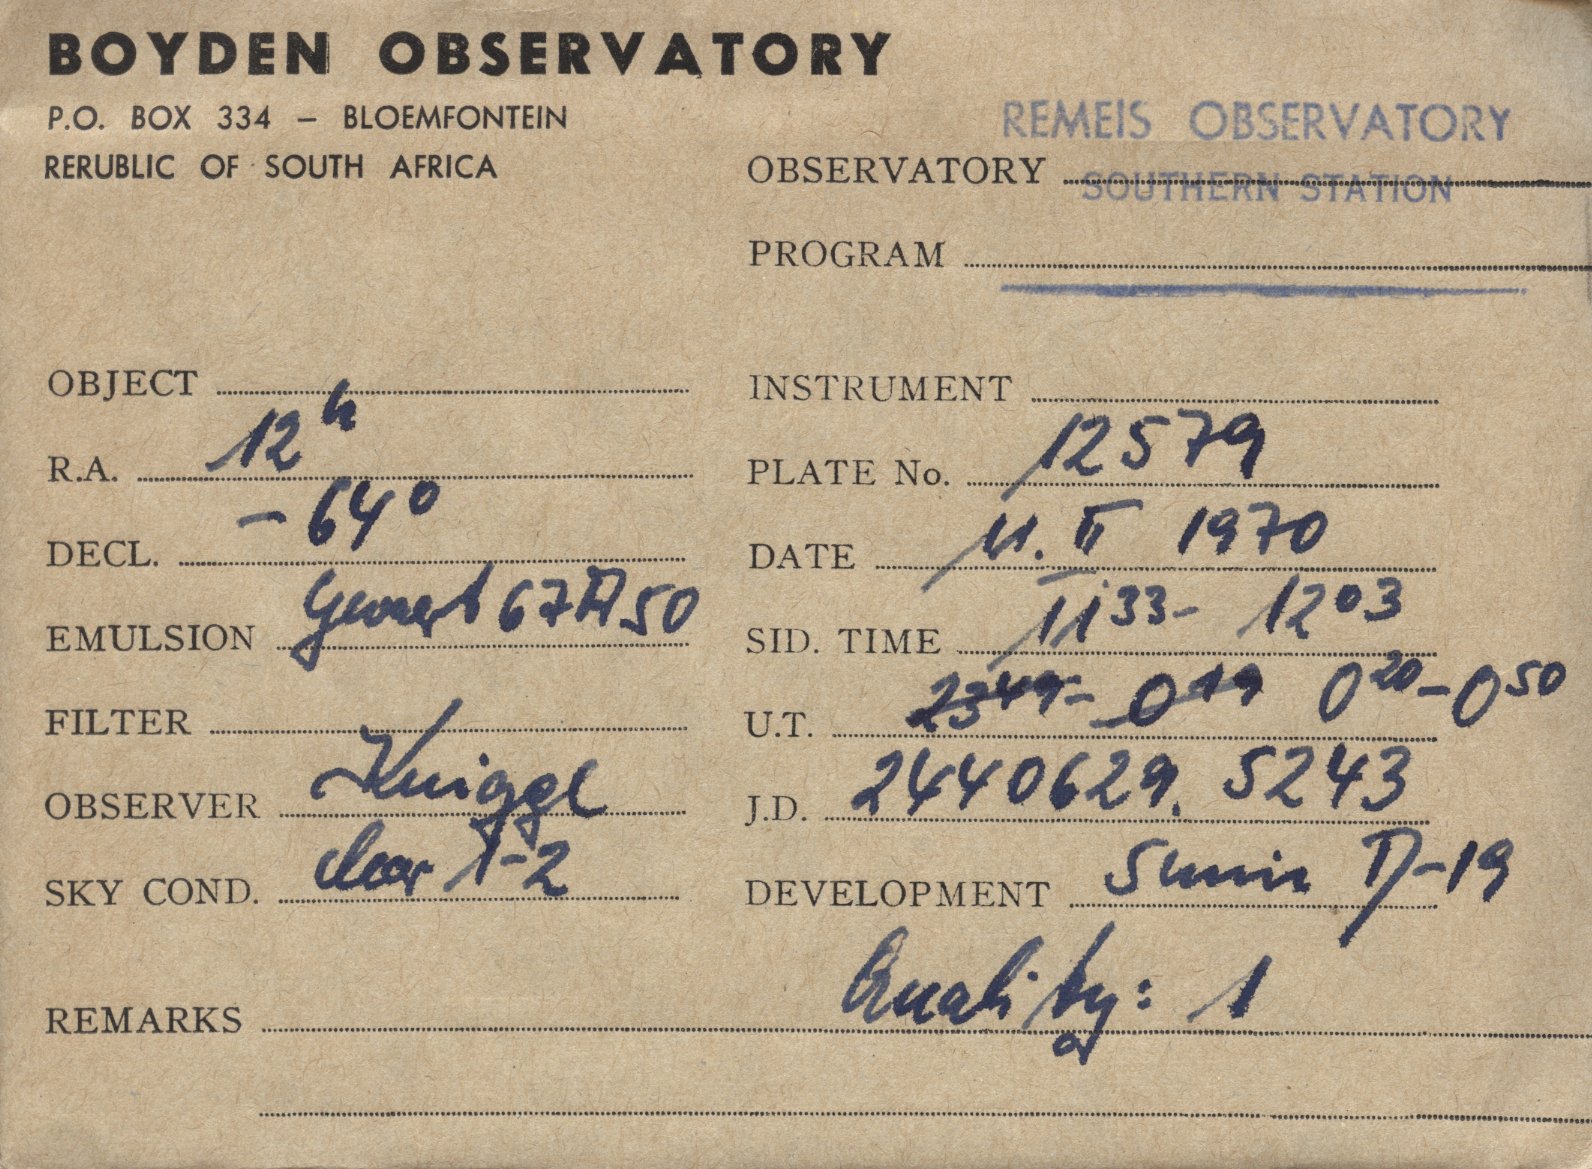 BOYDEN OBSERVATORY
P.O. BOX 334 – BLOEMFONTEIN
RERUBLIC OF SOUTH AFRICA
REMEIS OBSERVATORY
OBSERVATORY SOUTHERN STATION
PROGRAM
OBJECT
R.A. 12h
DECL. –64°
EMULSION Gevaert 67A50
FILTER
OBSERVER Knigge
SKY COND. clear 1-2
INSTRUMENT
PLATE No. 12579
DATE 11. II 1970
SID. TIME 11 33 – 12 03
U.T. 23 49 – 0 19 0 20 – 0 50
J.D. 2440629.5243
DEVELOPMENT 5 min D-19
REMARKS Quality: 1